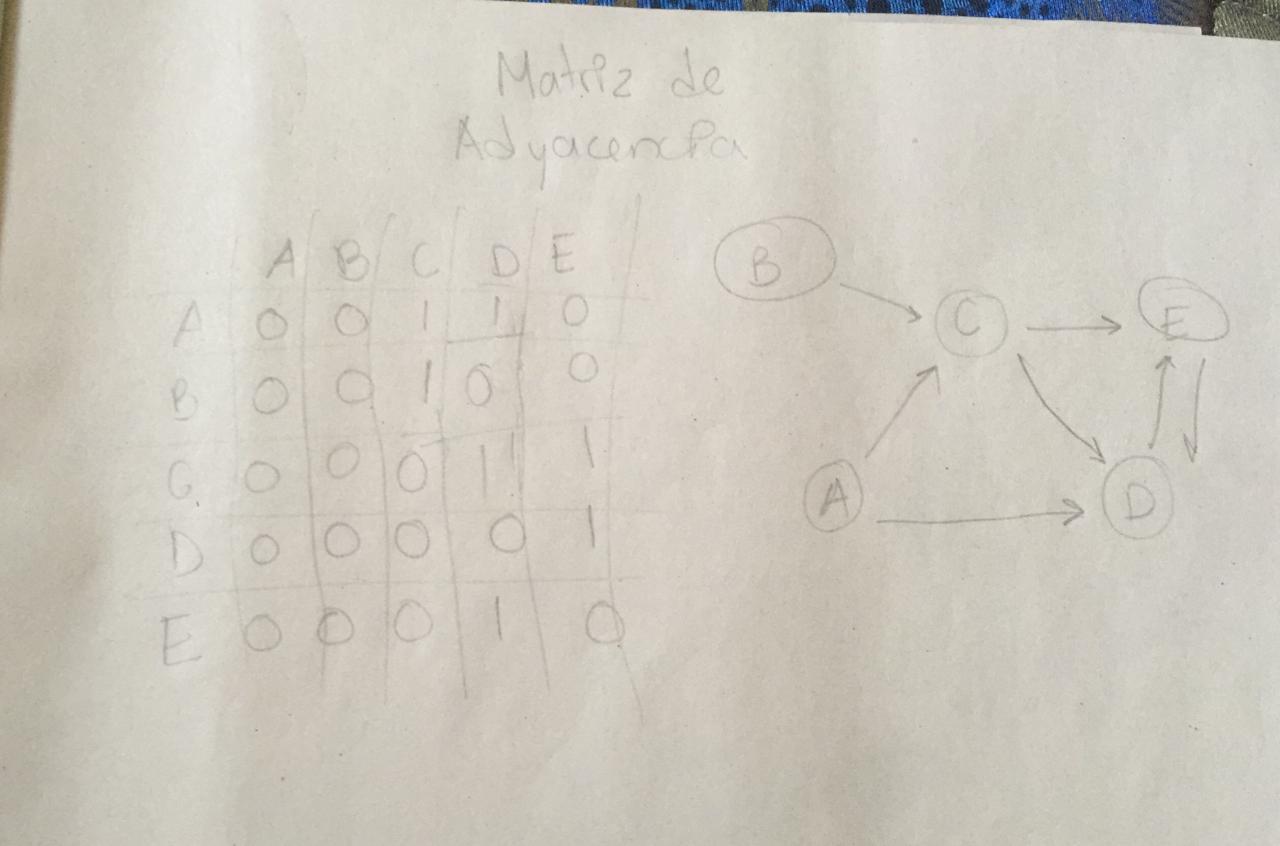 Matriz de
Adyacencia
A B C D E
A 0 0 1 1 0
B 0 0 1 0 0
C 0 0 0 1 1
D 0 0 0 0 1
E 0 0 0 1 0
B
C
E
A
D